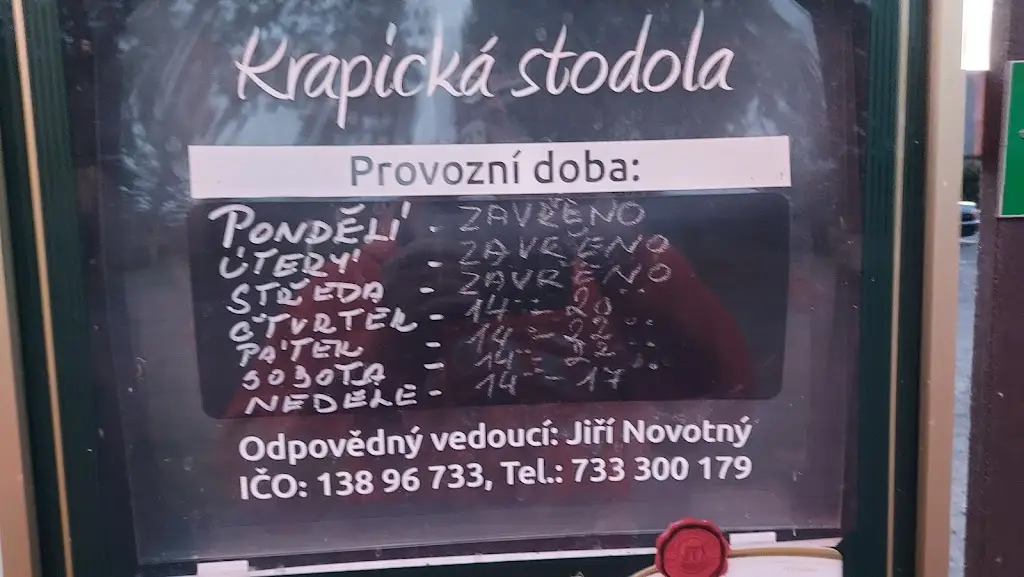 Krapická stodola
Provozní doba:
PONDĚLÍ - ZAVŘENO
ÚTERÝ - ZAVŘENO
STŘEDA - ZAVŘENO
ČTVRTEK - 14 - 20
PÁTEK - 14 - 22
SOBOTA - 14 - 22
NEDĚLE - 14 - 17
Odpovědný vedoucí: Jiří Novotný
IČO: 138 96 733, Tel.: 733 300 179